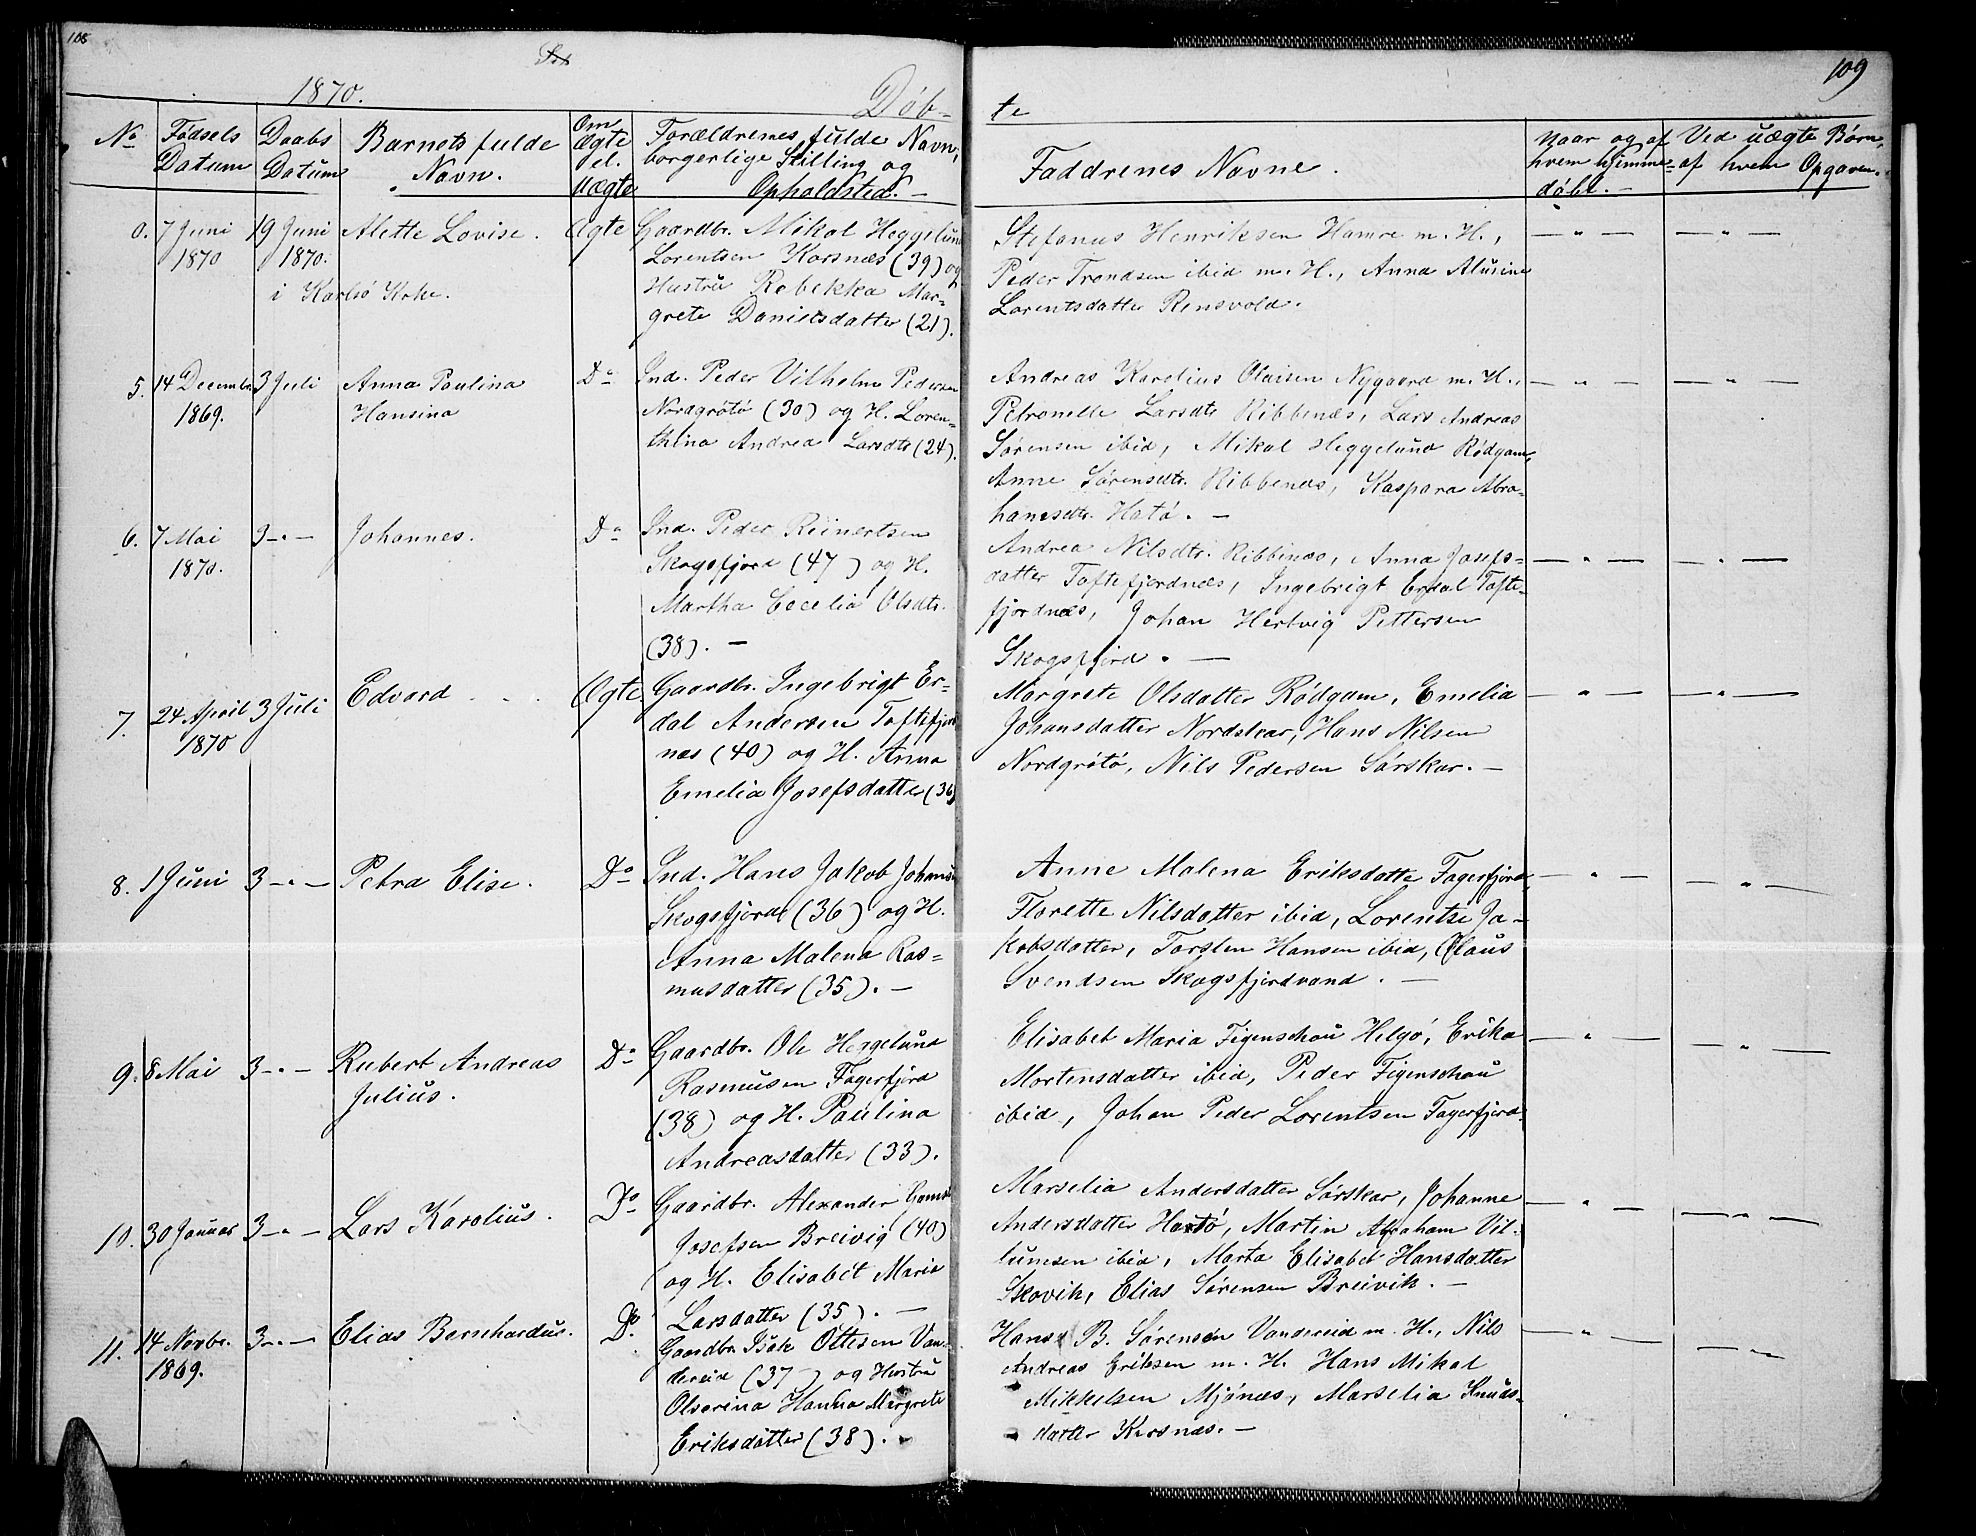 108
1870.
Döb-
No
Fødsels Datum
Daabs Datum
Barnets fulde Navn.
Om Ægte el. Uægte
Forældrenes fulde Navn, borgerlige Stilling og Opholdsted. —
0. 7 Juni 1870
19 Juni 1870. i Karlsö Kirke.
Alette Lovise.
Ægte
Gaardbr. Mikal Heggelund
Lorentsen Korsnæs (39) og
Hustru Rebekka Mar-
grete Danielsdatter (21).
5. 14 Decembr. 1869.
3 Juli
Anna Paulina
Hansina
Do
Ind. Peder Vilhelm Pedersen
Nordgrötö (30) og H. Loren-
thina Andrea Larsdtr (24).
6. 7 Mai 1870.
3 - " -
Johannes.
Do
Ind. Peder Reinertsen
Skogsfjord (47) og H.
Martha Cecelia Olsdtr.
(38). —
7. 24 April 1870
3 Juli
Edvard
Ægte.
Gaardbr. Ingebrigt Er-
dal Andersen Toftefjord
næs (40) og H. Anna
Emelia Josefsdatter (36)
8. 1 Juni
3 - " -
Petra Elise.
Do
Ind. Hans Jakob Johansen
Skogsfjord (36) og H.
Anna Malena Ras-
musdatter (35). —
9. 8 Mai
3 - " -
Rubert Andreas
Julius.
Do
Gaardbr. Ole Heggelund
Rasmusen Fagerfjord
(38) og H. Paulina
Andreasdatter (33).
10. 30 Januar
3 - " -
Lars Karolius.
Do
Gaardbr. Alexander
Josefsen Breivig (40)
og H. Elisabet Maria
Larsdatter (35). —
11. 14 Novbr. 1869.
3 - " -
Elias Bernhardus.
Do.
Gaardbr. Isak Ottesen Van-
dereid (37) og Hustru
Olserina Hanna Margrete
Eriksdatter (38).
109
te
Faddrenes Navne.
Naar og af hvem hjemme-döbt. —
Ved uægte Børn, af hvem Opgaven. -
Stefanus Henriksen Hamre m. H.,
Peder Trondsen ibid m. H., Anna Alusine
Lorentsdatter Rensvold.
Andreas Karelius Olaisen Nygaard m. H.,
Petronelle Larsdtr Ribbenæs, Lars Andreas
Sørensen ibid, Mikal Heggelund Rødgam,
Anne Sørensdtr. Ribbenæs, Kaspara Abra-
hamsdtr. Hatö. —
Andrea Nilsdtr. Ribbinæs, Anna Josefs-
datter Toftefjordnæs, Ingebrigt Erdal Tofte-
fjordnæs, Johan Hertvig Pettersen
Skogsfjord. —
Margrete Olsdatter Rödgam, Emelia
Johansdatter Nordskar, Hans Nilsen
Nordgrötö, Nils Pedersen Sörskar. —
Anne Malena Eriksdatter Fagerfjord,
Florette Nilsdatter ibid, Lorentse Ja-
kobsdatter, Torsten Hansen ibid, Claus
Svendsen Skogsfjordvand. —
Elisabet Maria Figenschau Helgö, Erika
Mortensdatter ibid, Peder Figenschau
ibid, Johan Peder Lorentsen Fagerfjord.
Marselia Andersdatter Sörskar, Johanne
Andersdatter Hatö, Martin Abraham Vil-
lumsen ibid, Marta Elisabet Hansdatter
Skovik, Elias Sørensen Breivik. —
Hans B. Sørensen Vandereid m. H., Nils
Andreas Eriksen m. H. Hans Mikal
Mikkelsen Mjönæs, Marselia Knuds-
datter Korsnæs. —